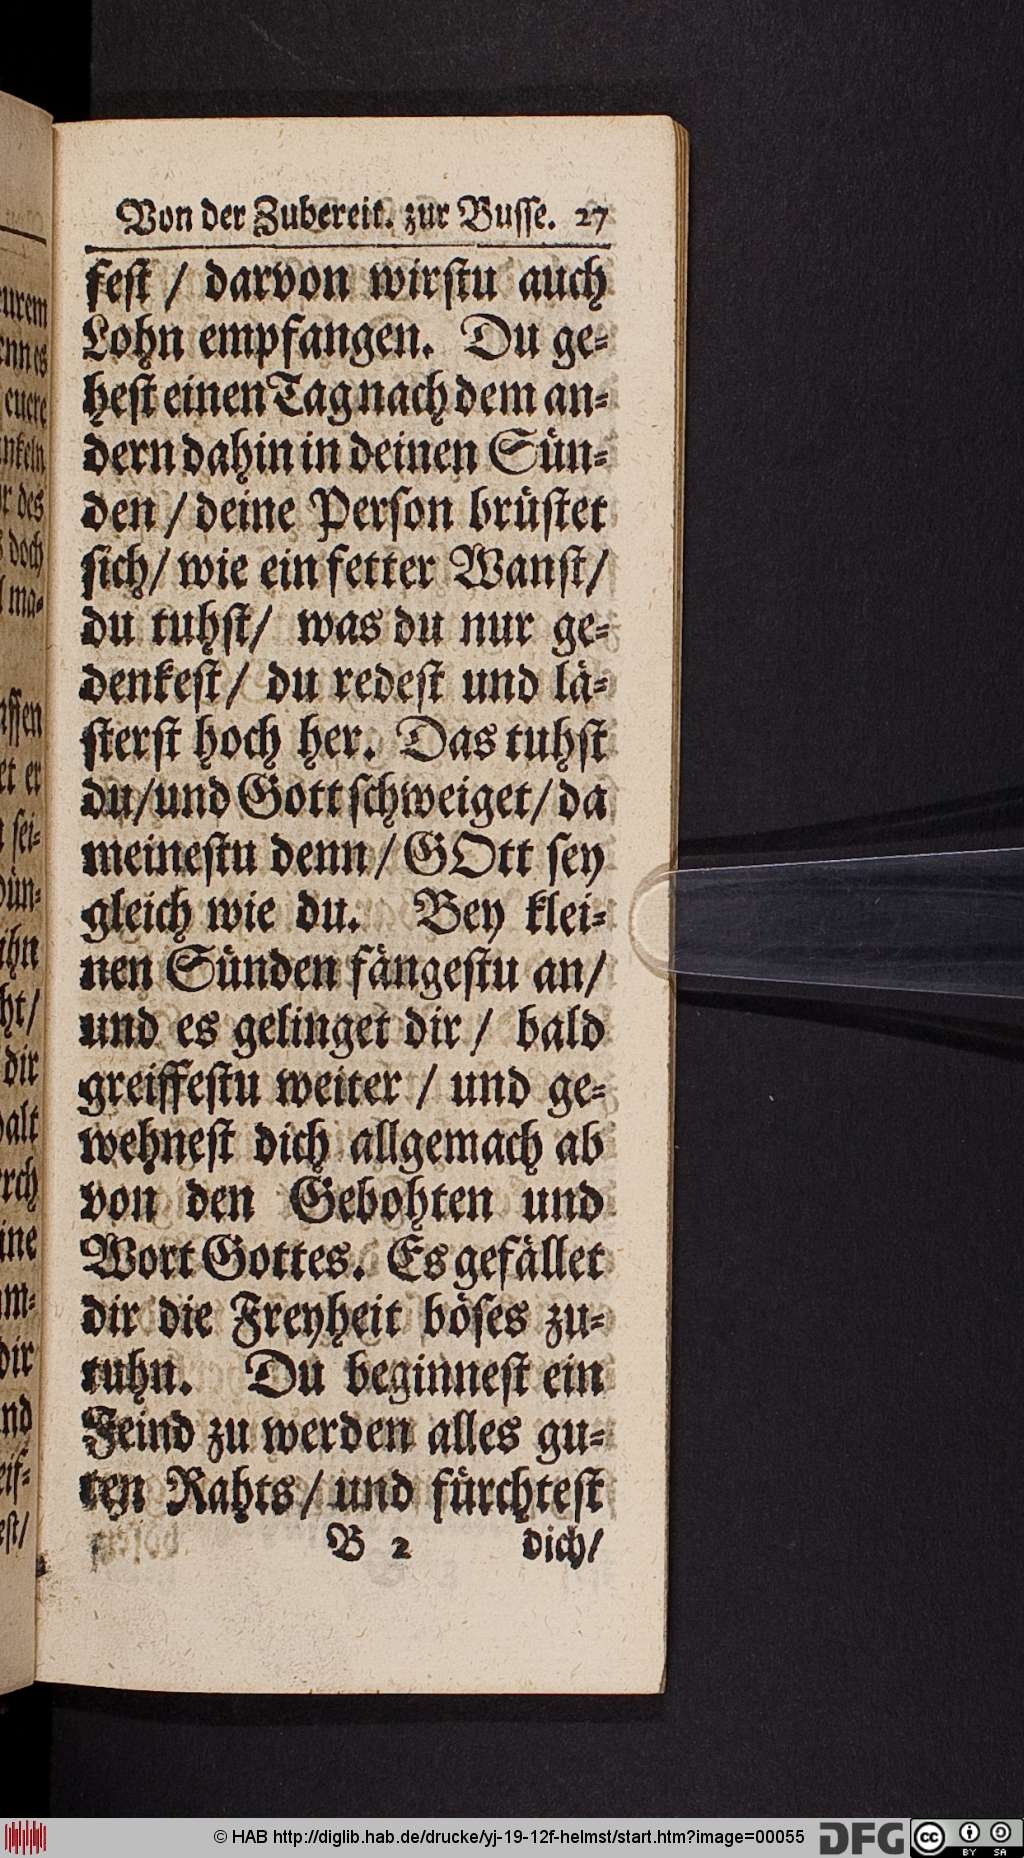 Von der Zubereit. zur Busse. 27
fest / darvon wirstu auch
Lohn empfangen. Du ge-
hest einen Tag nach dem an-
dern dahin in deinen Sün-
den / deine Person brüstet
sich / wie ein fetter Wanst /
du tuhst / was du nur ge-
denkest / du redest und lä-
sterst hoch her. Das tuhst
du / und Gott schweiget / da
meinestu denn / GOtt sey
gleich wie du. Bey klei-
nen Sünden fängestu an /
und es gelinget dir / bald
greiffestu weiter / und ge-
wehnest dich allgemach ab
von den Gebohten und
Wort Gottes. Es gefället
dir die Freyheit böses zu-
tuhn. Du beginnest ein
Feind zu werden alles gu-
ten Rahts / und fürchtest
B 2 dich /
© HAB http://diglib.hab.de/drucke/yj-19-12f-helmst/start.htm?image=00055
DFG
cc BY SA